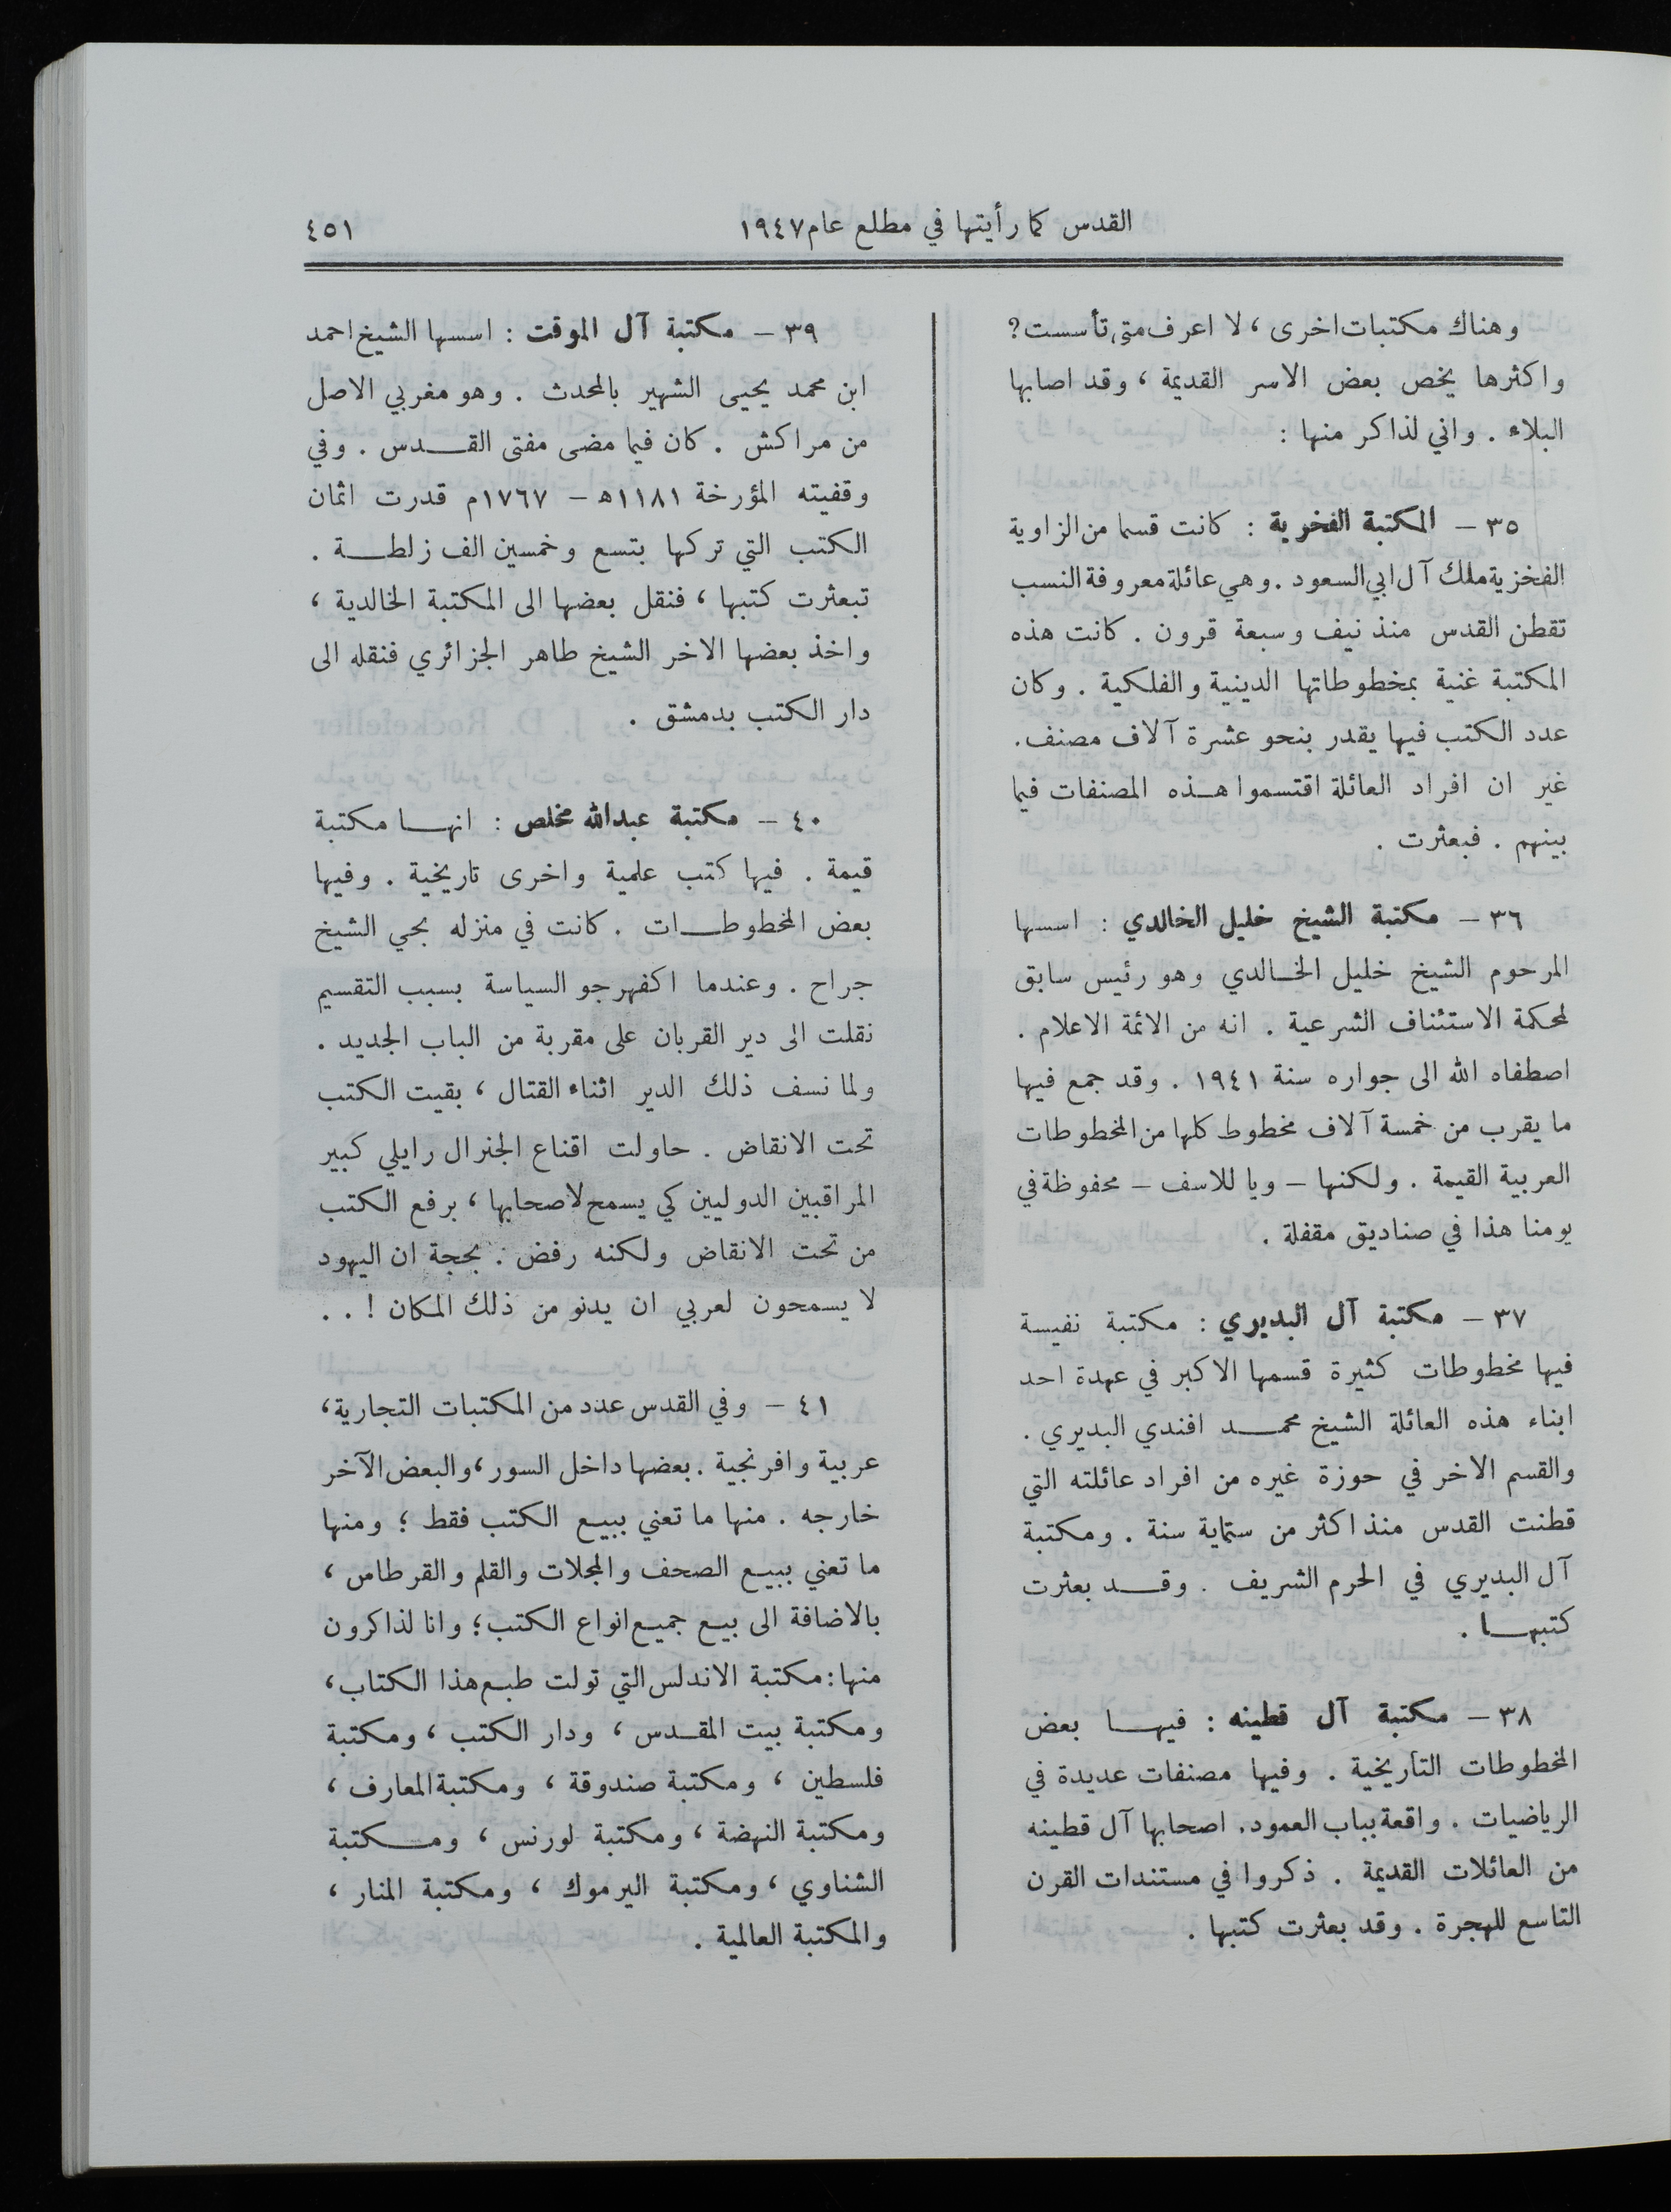 القدس كما رأيتها في مطلع عام ١٩٤٧
٤٥١
وهناك مكتبات اخرى ، لا اعرف متى تأسست؟
واكثرها يخص بعض الاسر القديمة ، وقد اصابها
البلاء . واني لذاكر منها :
٣٥ – المكتبة الفخرية : كانت قسما من الزاوية
الفخزية ملك آل ابي السعود . وهي عائلة معروفة النسب
تقطن القدس منذ نيف وسبعة قرون . كانت هذه
المكتبة غنية بمخطوطاتها الدينية والفلكية . وكان
عدد الكتب فيها يقدر بنحو عشرة آلاف مصنف .
غير ان افراد العائلة اقتسموا هذه المصنفات فيما
بينهم . فبعثرت .
٣٦ – مكتبة الشيخ خليل الخالدي : اسسها
المرحوم الشيخ خليل الخالدي وهو رئيس سابق
لمحكمة الاستئناف الشرعية . انه من الائمة الاعلام .
اصطفاه الله الى جواره سنة ١٩٤١ . وقد جمع فيها
ما يقرب من خمسة آلاف مخطوط كلها من المخطوطات
العربية القيمة . ولكنها – ويا للاسف – محفوظة في
يومنا هذا في صناديق مقفلة .
٣٧ – مكتبة آل البديري : مكتبة نفيسة
فيها مخطوطات كثيرة قسمها الاكبر في عهدة احد
ابناء هذه العائلة الشيخ محمد افندي البديري .
والقسم الاخر في حوزة غيره من افراد عائلته التي
قطنت القدس منذ اكثر من ستماية سنة . ومكتبة
آل البديري في الحرم الشريف . وقد بعثرت
كتبها .
٣٨ – مكتبة آل قطينه : فيها بعض
المخطوطات التأريخية . وفيها مصنفات عديدة في
الرياضيات . واقعة بباب العمود . اصحابها آل قطينه
من العائلات القديمة . ذكروا في مستندات القرن
التاسع للهجرة . وقد بعثرت كتبها .
٣٩ – مكتبة آل الموقت : اسسها الشيخ احمد
ابن محمد يحيى الشهير بالمحدث . وهو مغربي الاصل
من مراكش . كان فيما مضى مفتى القدس . وفي
وقفيته المؤرخة ١١٨١ه – ١٧٦٧م قدرت اثمان
الكتب التي تركها بتسع وخمسين الف زلطة .
تبعثرت كتبها ، فنقل بعضها الى المكتبة الخالدية ،
واخذ بعضها الاخر الشيخ طاهر الجزائري فنقله الى
دار الكتب بدمشق .
٤٠ – مكتبة عبدالله مخلص : انها مكتبة
قيمة . فيها كتب علمية واخرى تاريخية . وفيها
بعض المخطوطات . كانت في منزله بحي الشيخ
جراح . وعندما اكفهر جو السياسة بسبب التقسيم
نقلت الى دير القربان على مقربة من الباب الجديد .
ولما نسف ذلك الدير اثناء القتال ، بقيت الكتب
تحت الانقاض . حاولت اقناع الجنرال رايلي كبير
المراقبين الدوليين كي يسمح لاصحابها ، برفع الكتب
من تحت الانقاض ولكنه رفض : بحجة ان اليهود
لا يسمحون لعربي ان يدنو من ذلك المكان ! . .
٤١ – وفي القدس عدد من المكتبات التجارية ،
عربية وافرنجية . بعضها داخل السور ، والبعض الآخر
خارجه . منها ما تعني ببيع الكتب فقط ؛ ومنها
ما تعني ببيع الصحف والمجلات والقلم والقرطاس ،
بالاضافة الى بيع جميع انواع الكتب ؛ وانا لذاكرون
منها : مكتبة الاندلس التي تولت طبع هذا الكتاب ،
ومكتبة بيت المقدس ، ودار الكتب ، ومكتبة
فلسطين ، ومكتبة صندوقة ، ومكتبة المعارف ،
ومكتبة النهضة ، ومكتبة لورنس ، ومكتبة
الشناوي ، ومكتبة اليرموك ، ومكتبة المنار ،
والمكتبة العالمية .